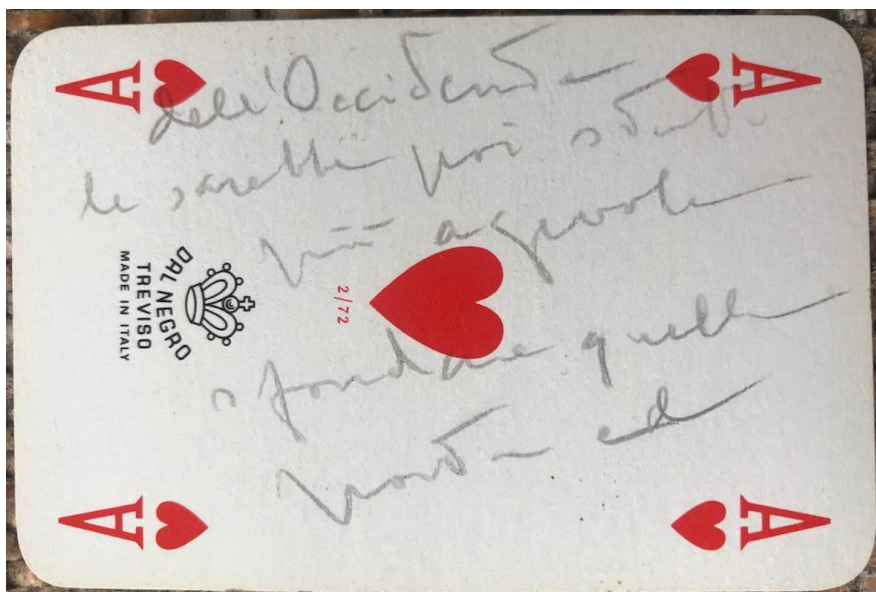 dell'Occidente
le sarebbe poi stato
più agevole
sfondare quella
porta ed
A
A
A
A
DAL NEGRO
TREVISO
MADE IN ITALY
2/72